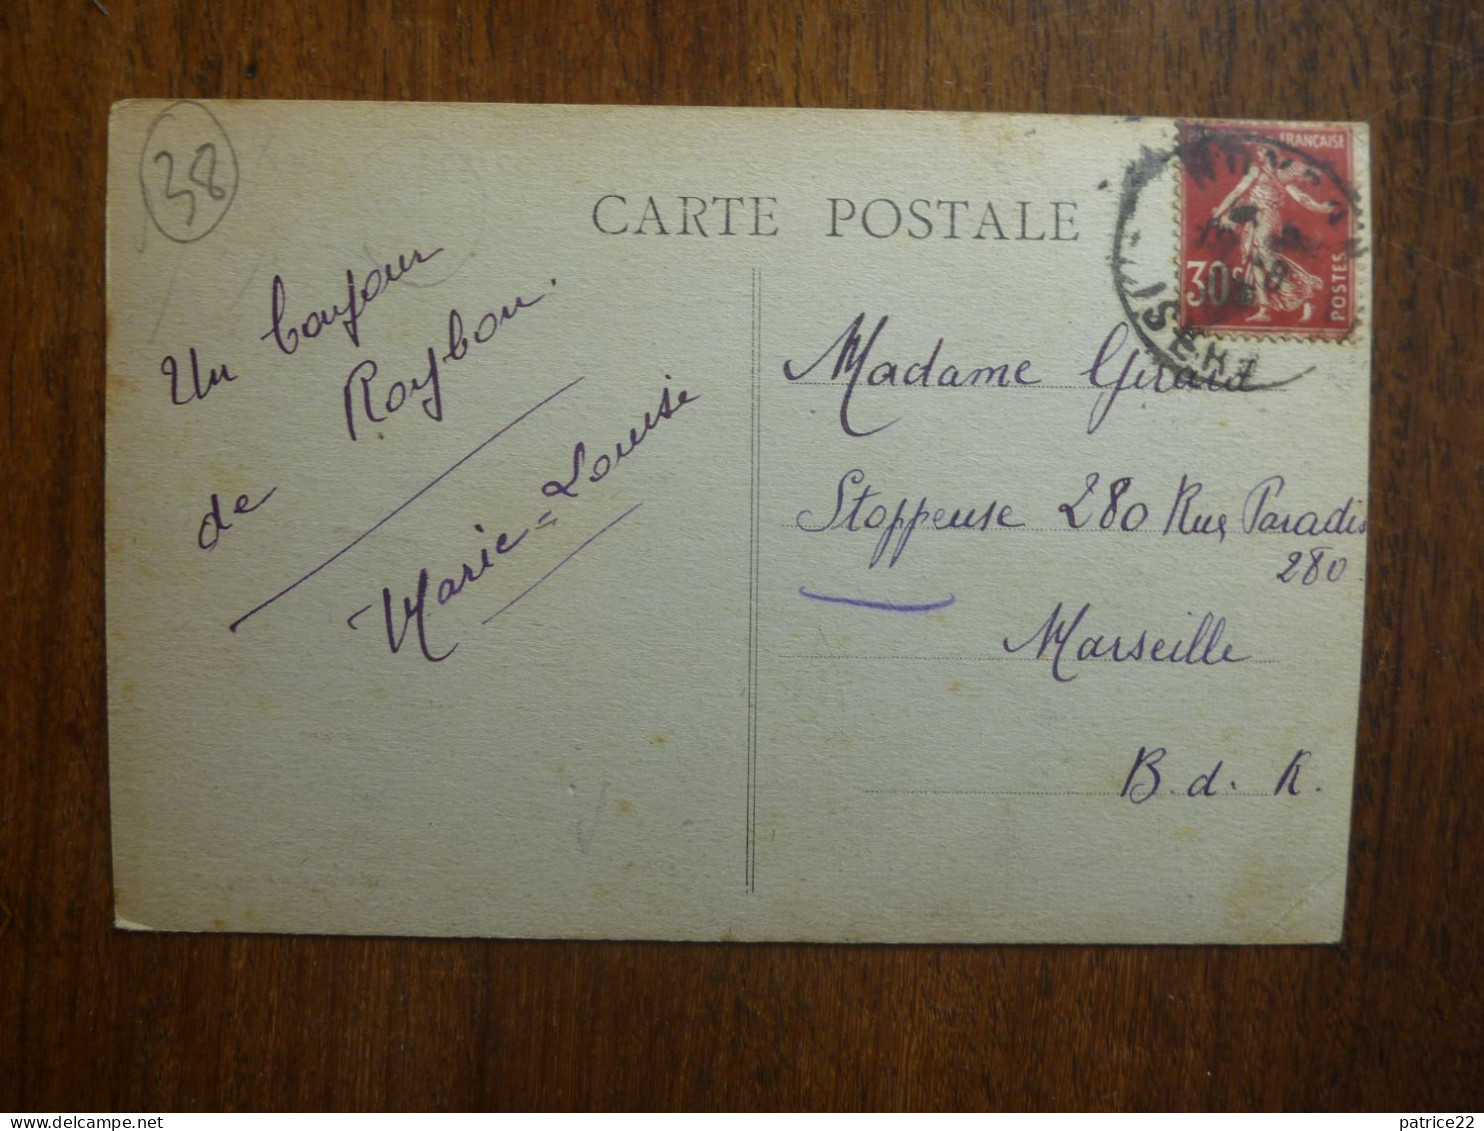 38
CARTE POSTALE
FRANÇAISE
30c
POSTES
ISERE
Un bonjour
de Roybon.
Marie-Louise
Madame Girard
Stoppeuse 280 Rue Paradis
280.
Marseille
B. d. R.
patrice22